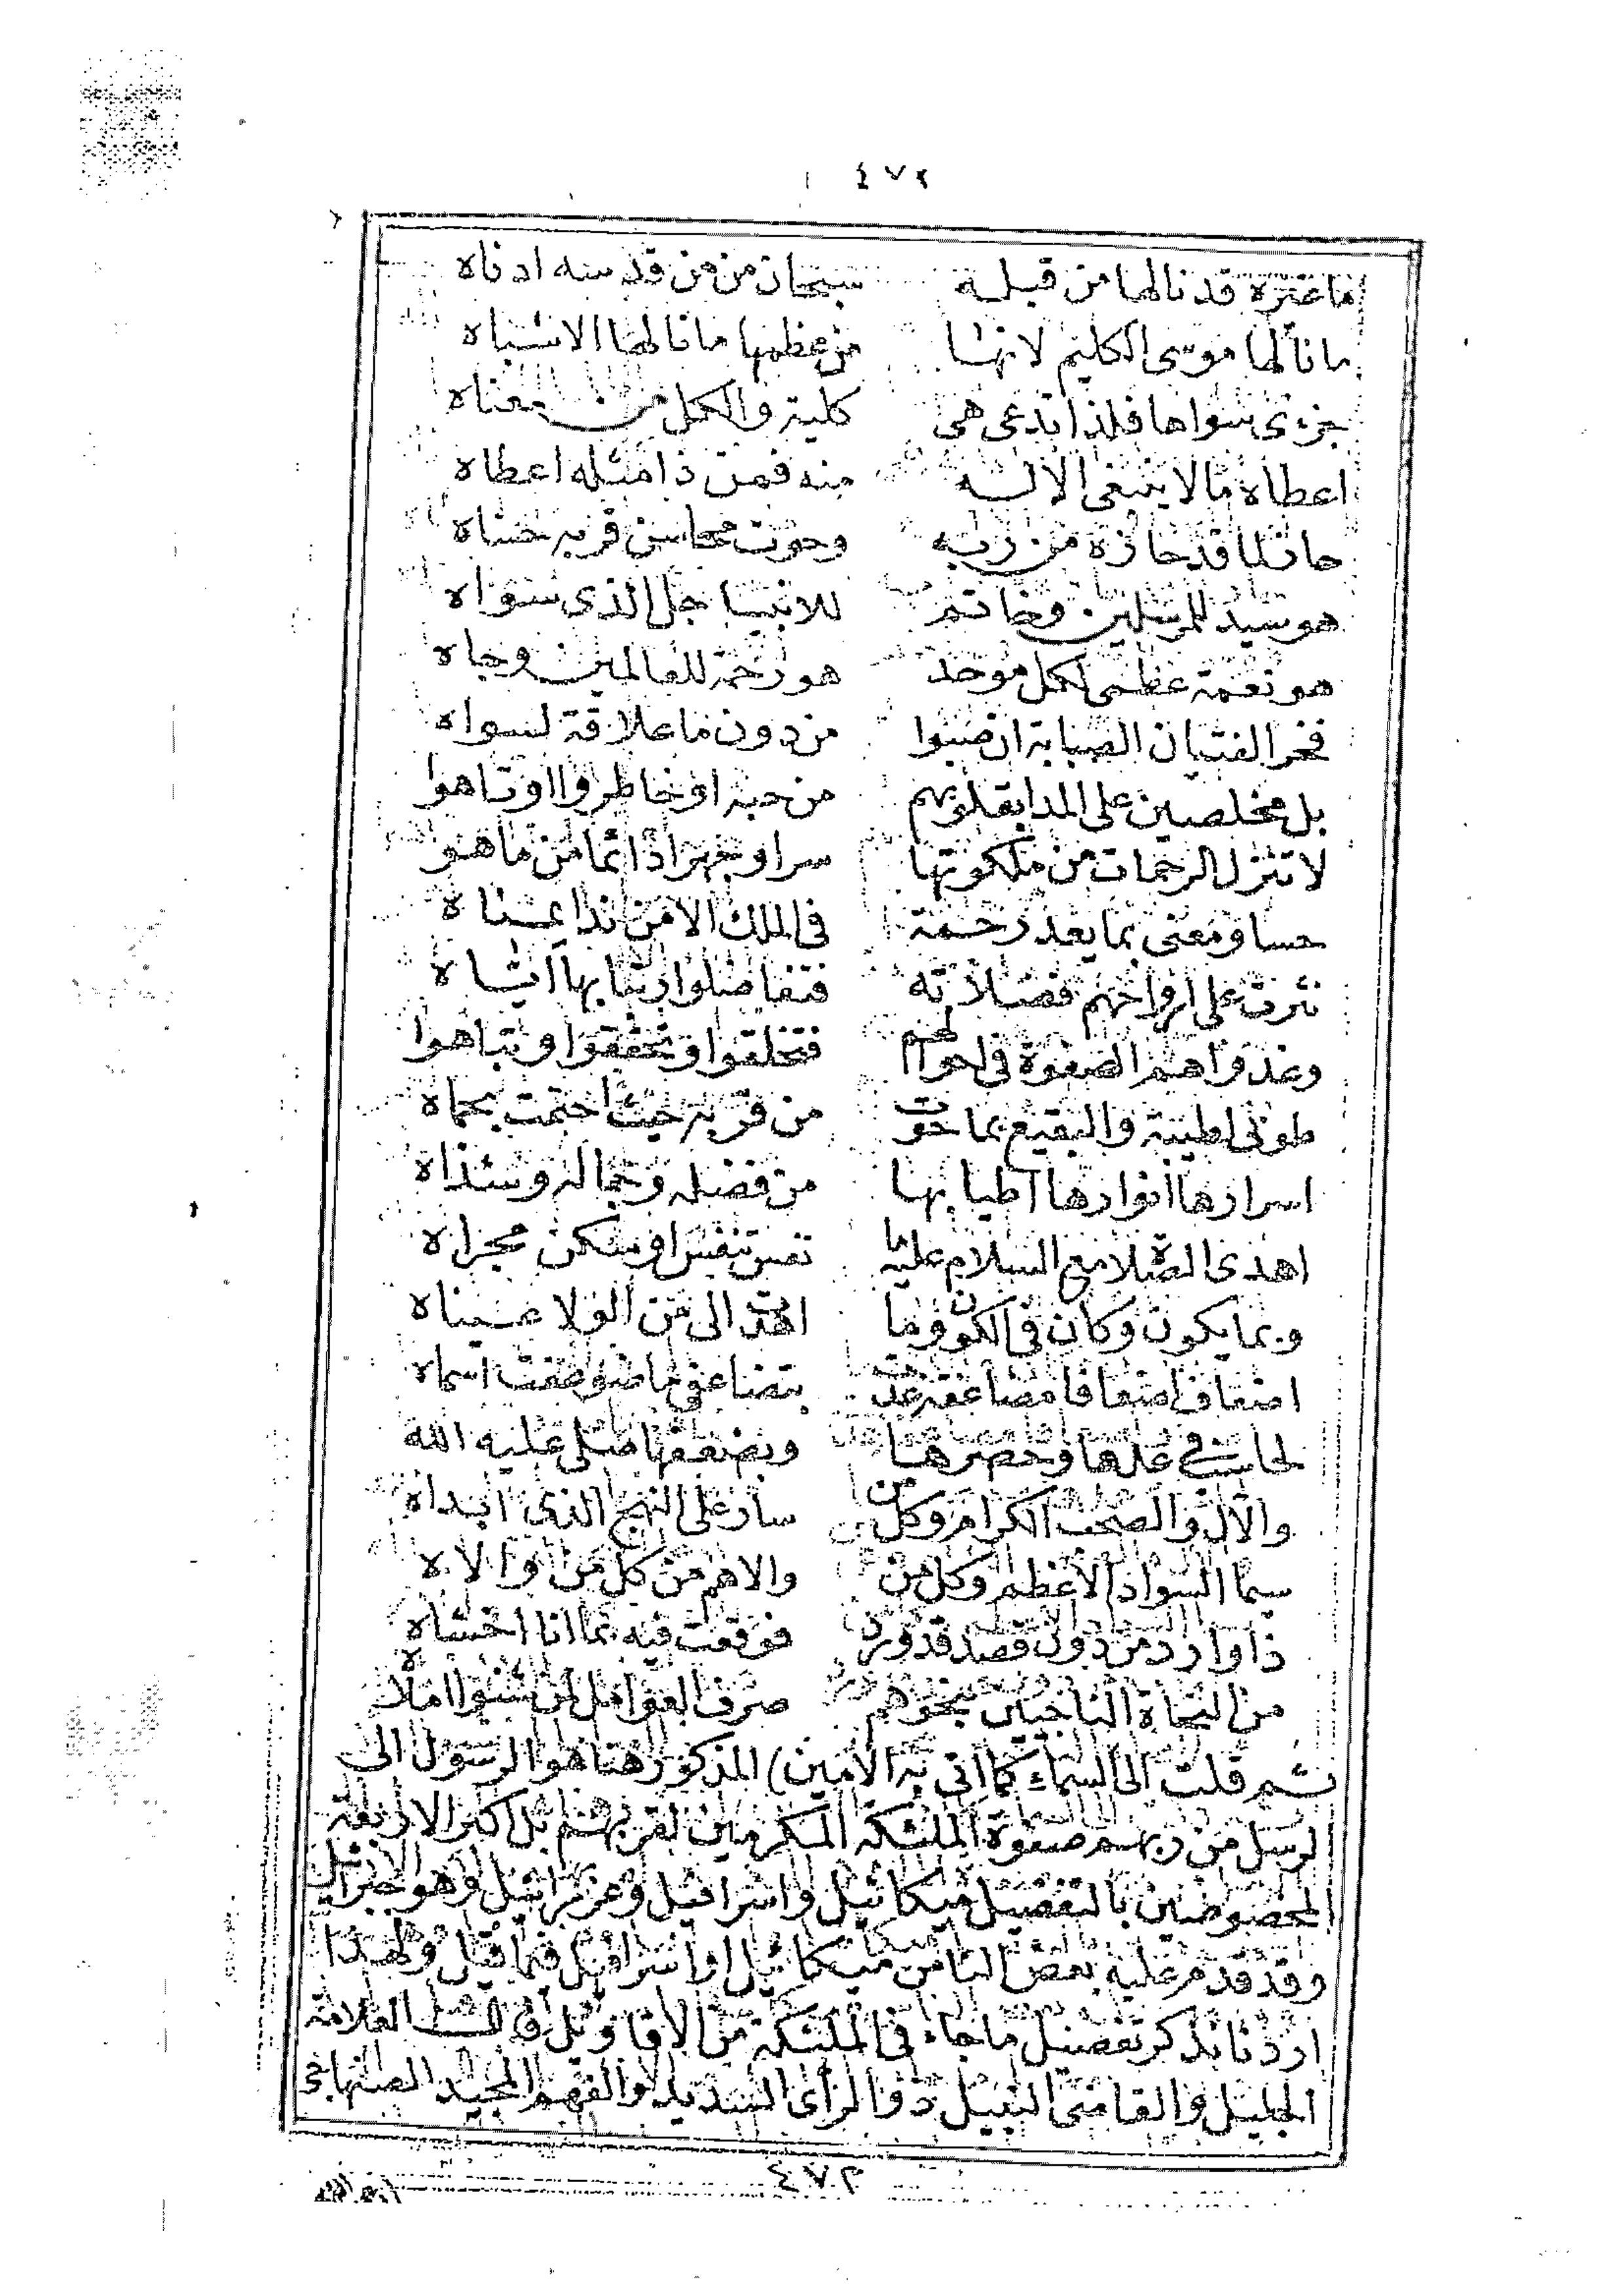 ٤٧٢
ما غيره قد نالها من قبله سبحان من من قدسه ادناه
ما نالها موسى الكليم لانها من عظمها ما نالها الاشباه
جزءى سواها فلذا تدعى هى كلية والكل من معناه
اعطاه ما لا ينبغى الا له منه فمن ذا مثله اعطاه
حاز قد حازه من ربه وحوت محاسن قربه حسناه
هو سيد للمرسلين وخاتم للانبيا جل الذى سواه
هو نعمة عظمى لكل موحد هو رحمة للعالمين وجاه
فخر الفتيان الصبابة ان صبوا من دون ما علاقة لسواه
بل مخلصين على المدا بقلوبهم من حبه او خاطروا او تاهوا
لا تنزل الرحمات من ملكوتها سرا وجهرا دائما من ما هو
حسا ومعنى بما يعد رحمة فى الملك الا من ندا
على ارواحهم فضلاته فتفاضلوا
وغدوا هم الصفوة فى احوالهم فتخلقوا وتحققوا وتباهوا
طوبى لطيبة والبقيع بما حوت من قربه حيث احتمت بحماه
اسرارها انوارها اطيابها من فضله وجماله وشذاه
اهدى الصلا مع السلام عليه ما نفس تنفس او سكن مجراه
وبما يكون وكان فى الكون وما اهتد الى من الولا عيناه
اضعاف اضعافا مضاعفة غدت بتضاعف ما ضوعفت اسماه
لحاسب فى عدها وحصرها وبضعفها صلى عليه الله
والآل والصحب الكرام وكل من سار على النهج الذى ابداه
سيما السواد الاعظم وكل من والاهم من كل من والاه
ذا وارد من دون قصد قد ورد فوقعت فيه بما انا اخشاه
من النحاة الناحين نحوهم صرف العوامل
ثم قلت الى السماء كما اتى به الامين) المذكور هنا هو الرسول الى
لرسل من ربهم صفوة الملئكة المكرمين لقربهم بل اكبر الاربعة
المخصوصين بالتفضيل ميكائيل واسرافيل وعزرائيل وهو جبرائيل
وقد قدم عليه بعض الناس ميكائيل او اسرافيل فيما قيل ولهذا
اردنا نذكر تفضيل ما جاء فى الملئكة من الاقاويل قال العلامة
الجليل والقاضى النبيل ذو الرأى السديد والفهم المجيد الصنهاجى
٤٧٢